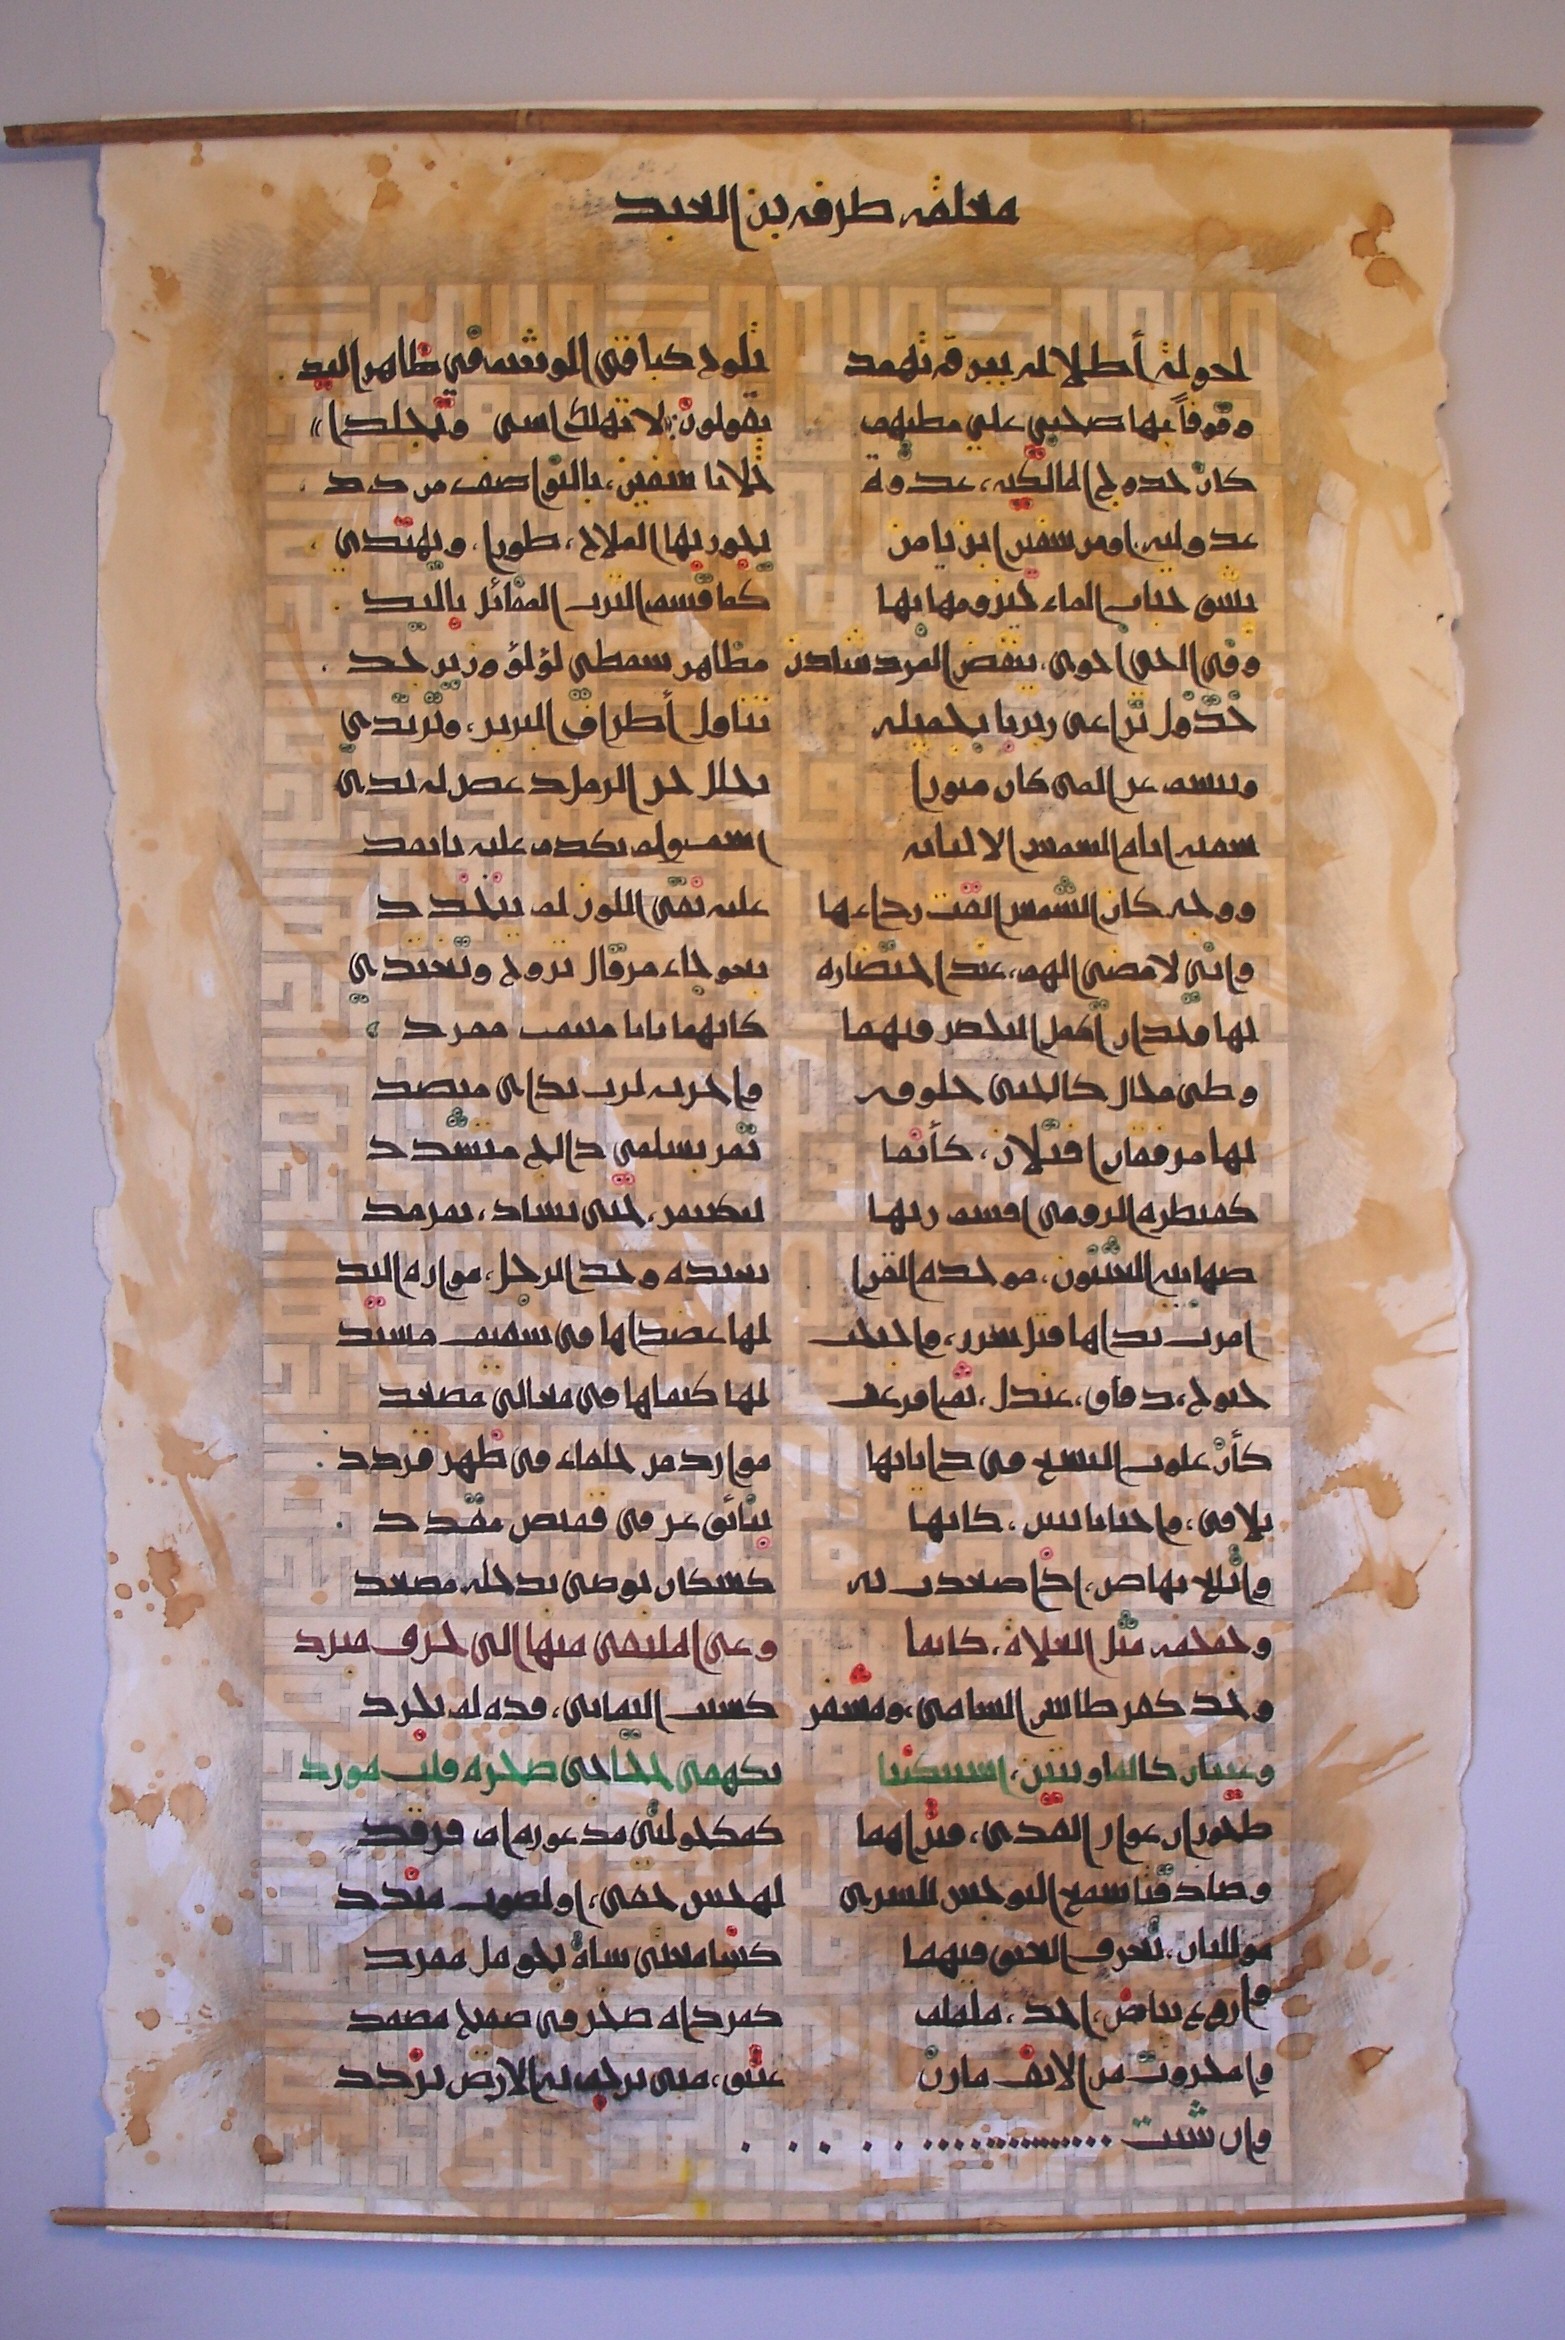 معلقة طرفة بن العبد
لخولة أطلال ببرقة ثهمد تلوح كباقي الوشم في ظاهر اليد
وقوفاً بها صحبي علي مطيهم يقولون: «لا تهلك اسى وتجلد»
كان حدوج المالكية، غدوة خلايا سفين، بالنواصف من دد
عدولية، او من سفين ابن يامن يجور بها الملاح، طورا، ويهتدي
يشق حباب الماء حيزومها بها كما قسم الترب المفائل باليد
وفي الحي احوى، ينفض المرد شادن مظاهر سمطي لؤلؤ وزبرجد
خذول تراعى ربربا بخميلة تناول أطراف البرير، وترتدي
وتبسم عن المى كان منورا تخلل حر الرمل دعص له ندي
سقته اياه الشمس الا لثاته اسف ولم تكدم عليه باثمد
ووجه كان الشمس القت رداءها عليه نقي اللون لم يتخدد
واني لامضي الهم، عند احتضاره بعوجاء مرقال تروح وتغتدي
لها فخذان اكمل النحض فيهما كانهما بابا منيف ممرد
وطي محال كالحني خلوفه واجرنة لزت بداي منضد
لها مرفقان افتلان، كأنما تمر بسلمي دالج متشدد
كقنطرة الرومي اقسم ربها لتكتنفن، حتى تشاد، بقرمد
صهابية العثنون، موجدة القرا بعيدة وخد الرجل، موارة اليد
امرت يداها فتل شزر، واجنحت لها عضداها في سقيف مسند
جنوح، دفاق، عندل، ثم افرعت لها كتفاها في معالى مصعد
كأن علوب النسع في داياتها موارد من خلقاء في ظهر قردد
تلاقي، واحيانا تبين، كانها بنائق غر في قميص مقدد
واتلع نهاض، اذا صعدت به كسكان بوصي بدجلة مصعد
وجمجمة مثل العلاة، كانما وعى الملتقى منها الى حرف مبرد
وخد كقرطاس الشامي، ومشفر كسبت اليماني، قده لم يجرد
وعينان كالماويتين، استكنتا بكهفي حجاجي صخرة قلت مورد
طحوران عوار القذى، فتراهما كمكحولتي مذعورة ام فرقد
وصادقتا سمع التوجس للسرى لهجس خفي، او لصوت مندد
مؤللتان، تعرف العتق فيهما كسامعتي شاة بحومل مفرد
واروع نباض، احذ، ململم كمرداة صخر في صفيح مصمد
واعلم مخروت من الانف مارن عتيق، متى ترجم به الارض تزدد
وان شئت ..........